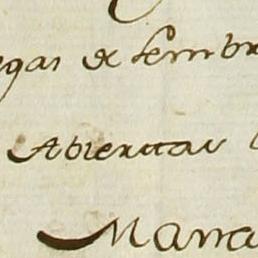 egas de sembr
Abiertas
Marra